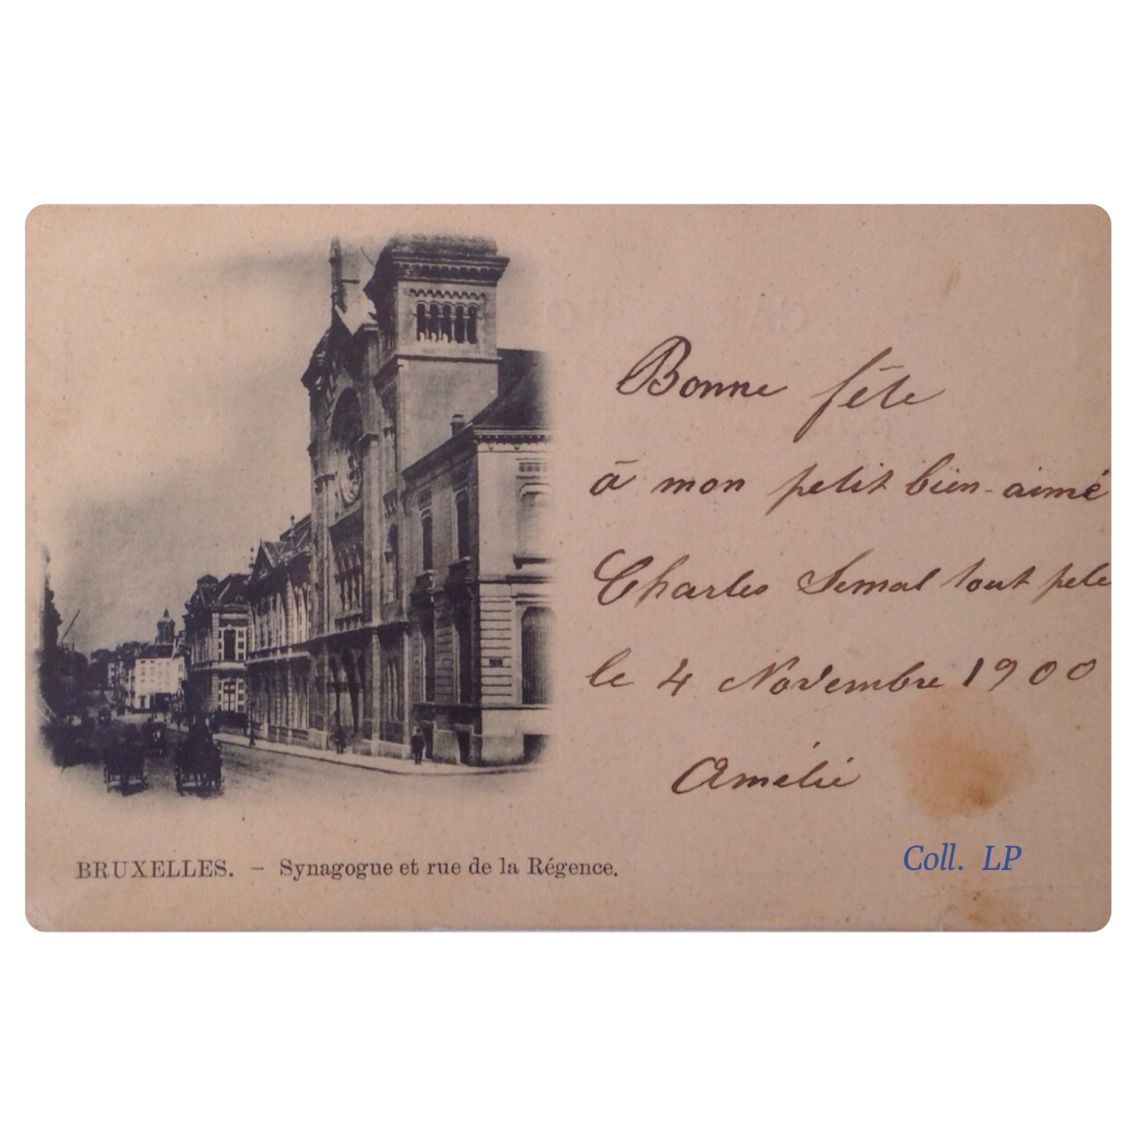 Bonne fête
à mon petit bien-aimé
Charles Semal tout
le 4 Novembre 1900
Amélie
BRUXELLES. – Synagogue et rue de la Régence.
Coll. LP